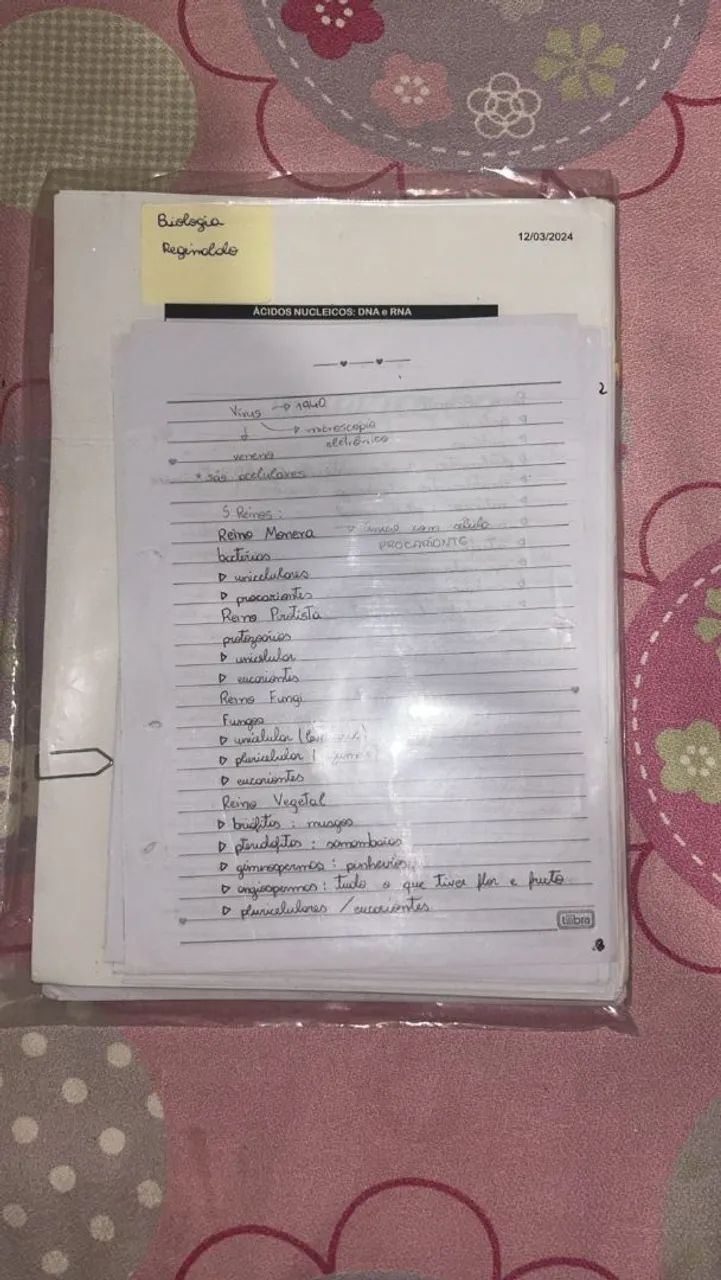 Biologia
Reginaldo
12/03/2024
ÁCIDOS NUCLEICOS: DNA e RNA
2
Vírus → 1940
↓ → microscópio
eletrônico
veneno
* são acelulares
5 Reinos:
Reino Monera ▷ único com célula
PROCARIONTE
bactérias
▷ unicelulares
▷ procariontes
Reino Protista
protozoários
▷ unicelular
▷ eucariontes
Reino Fungi
Fungos
▷ unicelular
▷ pluricelular
▷ eucariontes
Reino Vegetal
▷ briófitas: musgos
▷ pteridófitas: samambaias
▷ gimnospermas: pinheiros
▷ angiospermas: tudo o que tiver flor e fruto
▷ pluricelulares / eucariontes
tilibra